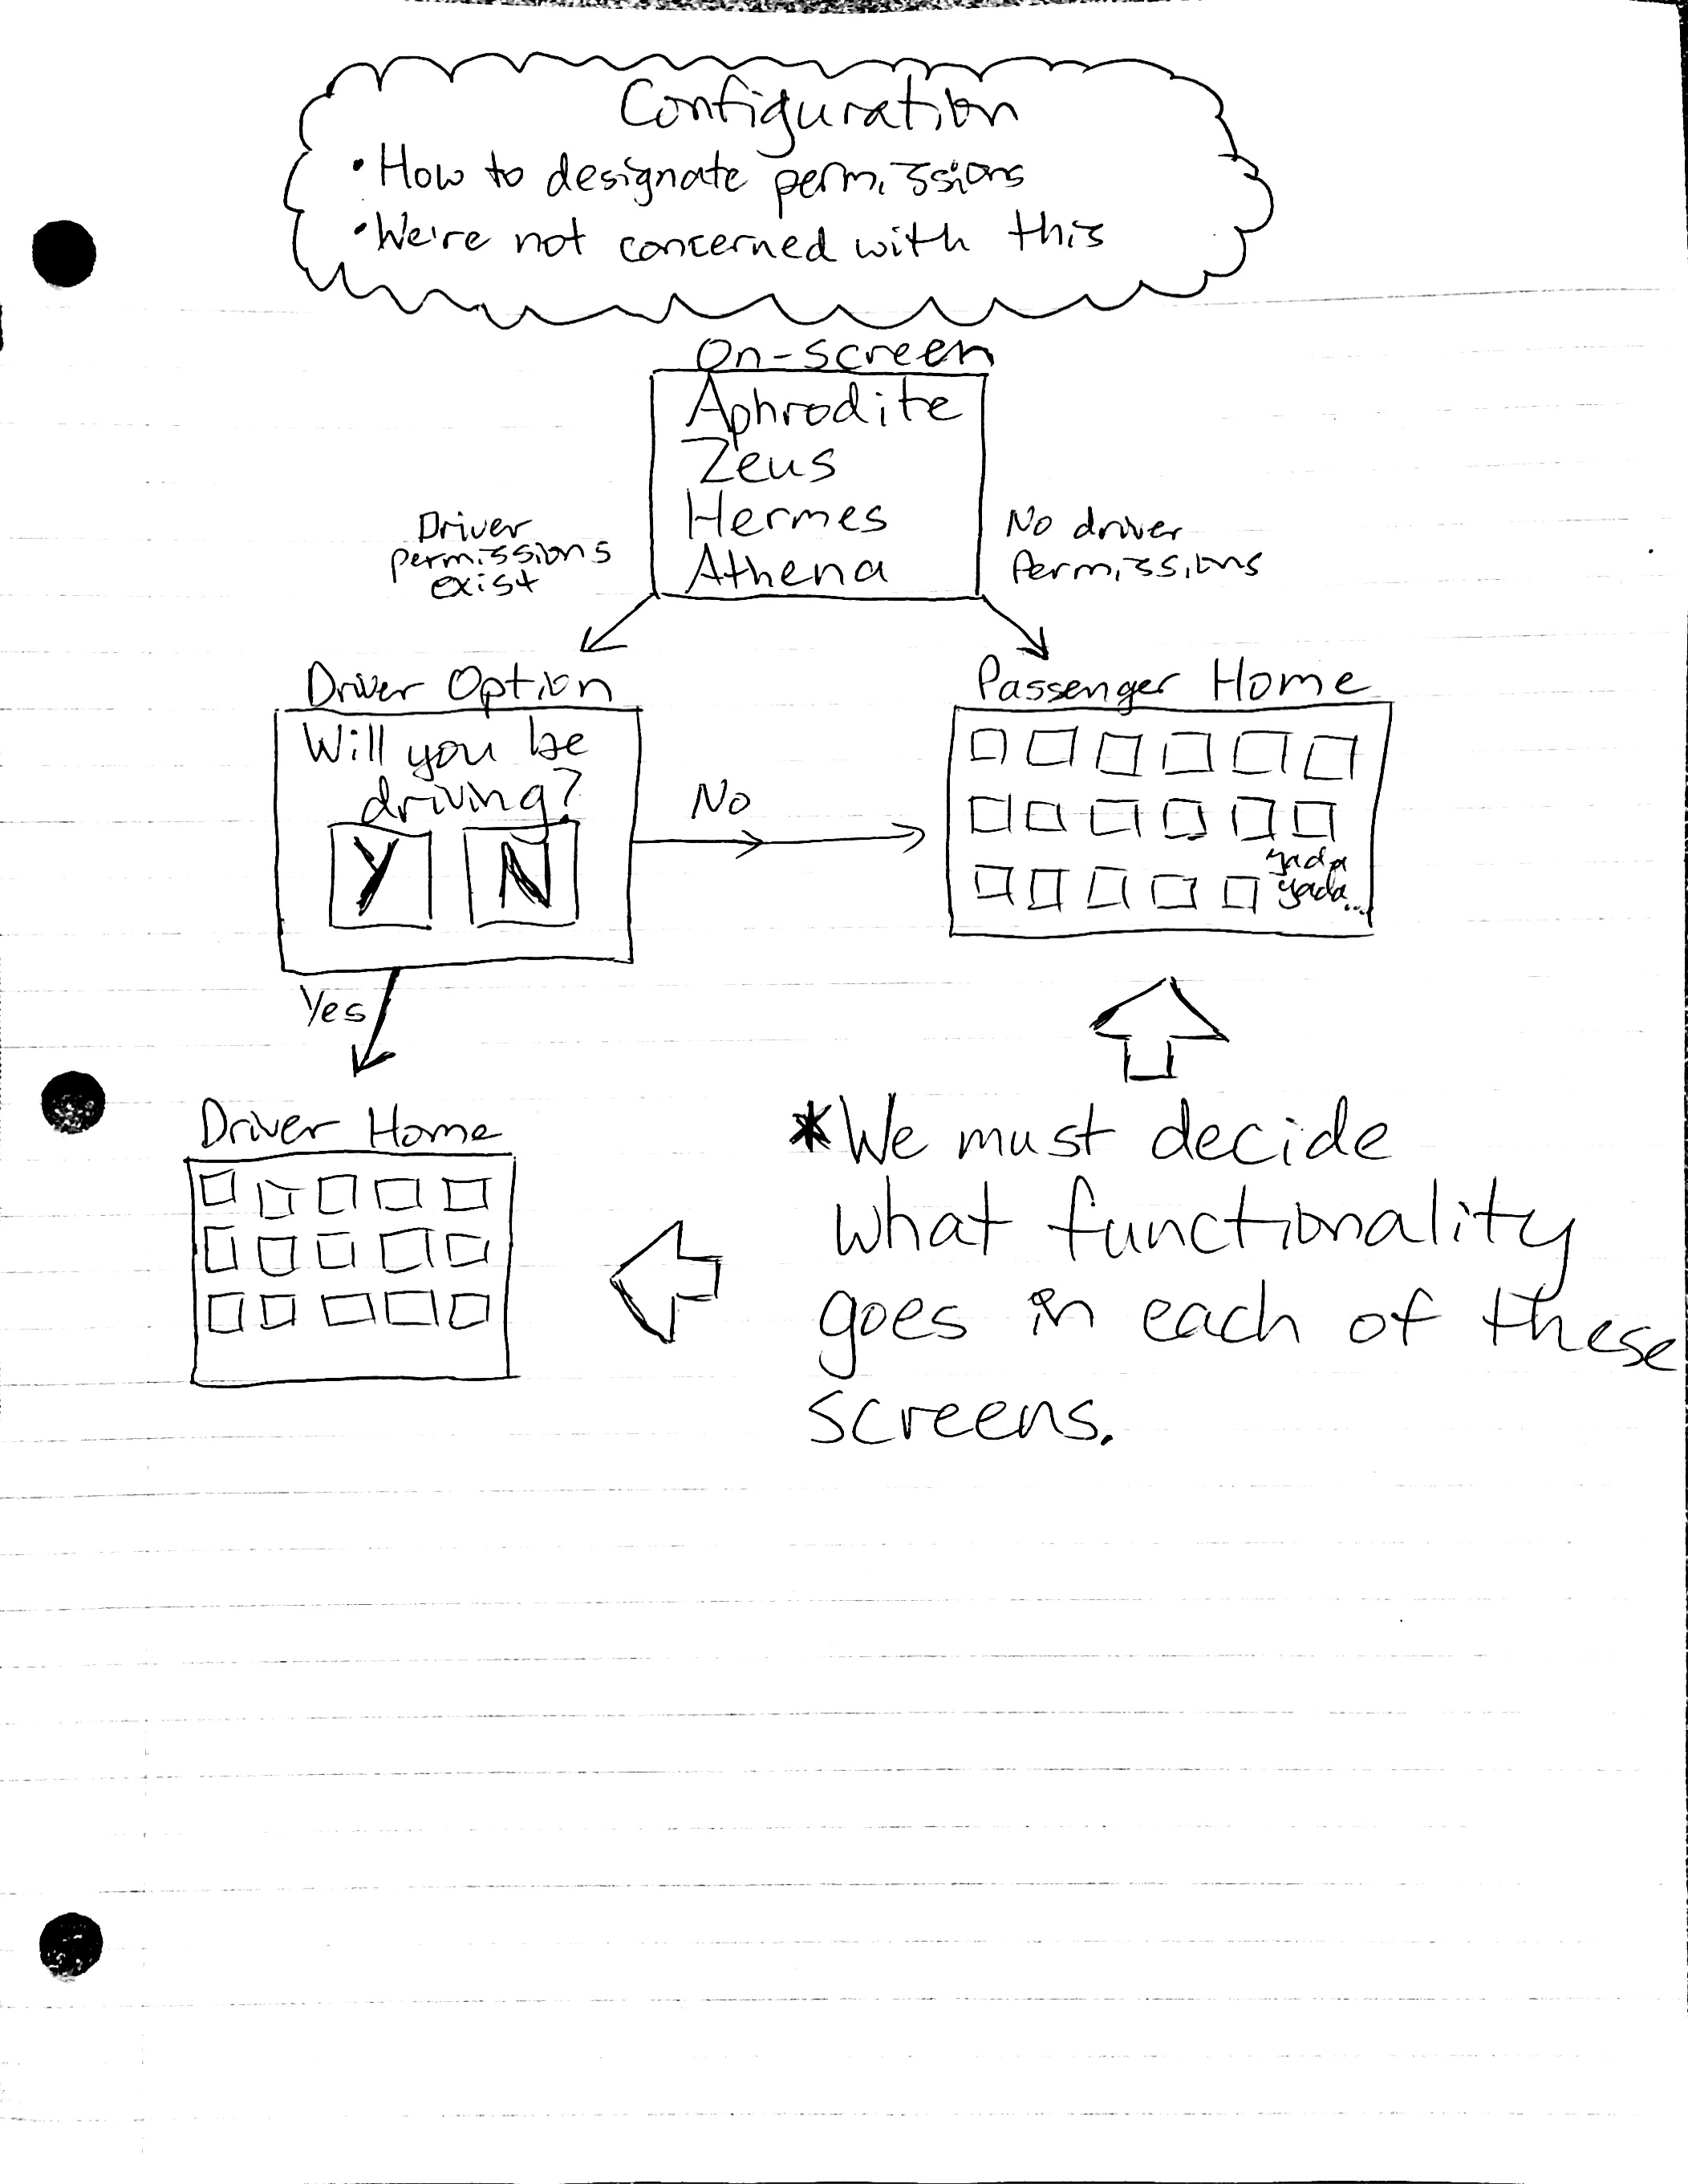 Configuration
• How to designate permissions
• We're not concerned with this
On-screen
Aphrodite
Zeus
Hermes
Athena
Driver
permissions
exist
No driver
Permissions
Driver Option
Will you be
driving?
Y N
No
Passenger Home
yada
yada...
Yes
Driver Home
*We must decide
what functionality
goes in each of these
screens.